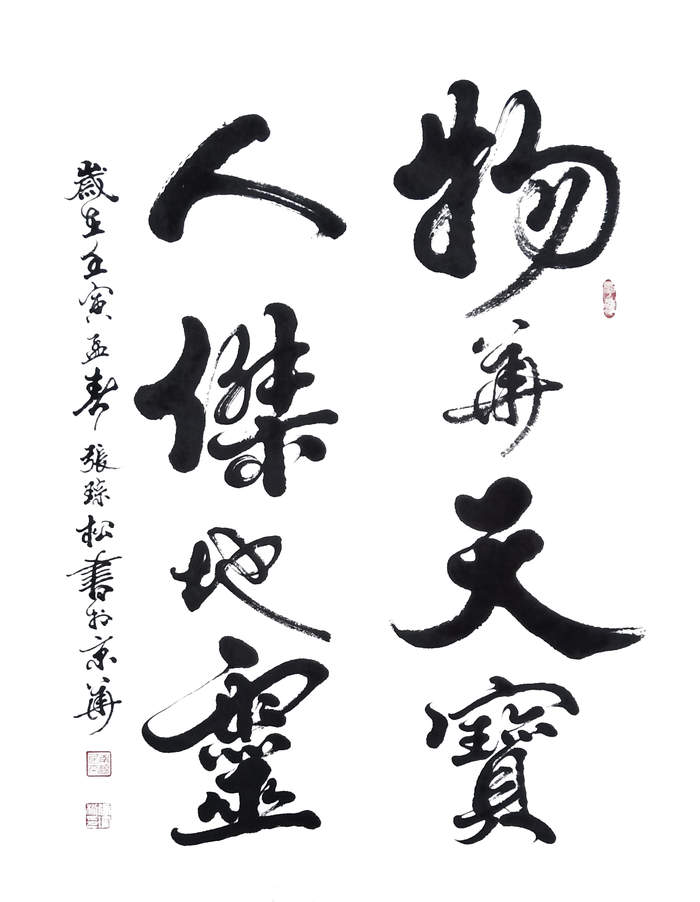 物華天寶
人傑地靈
歲在壬寅孟春張琮松書於京華